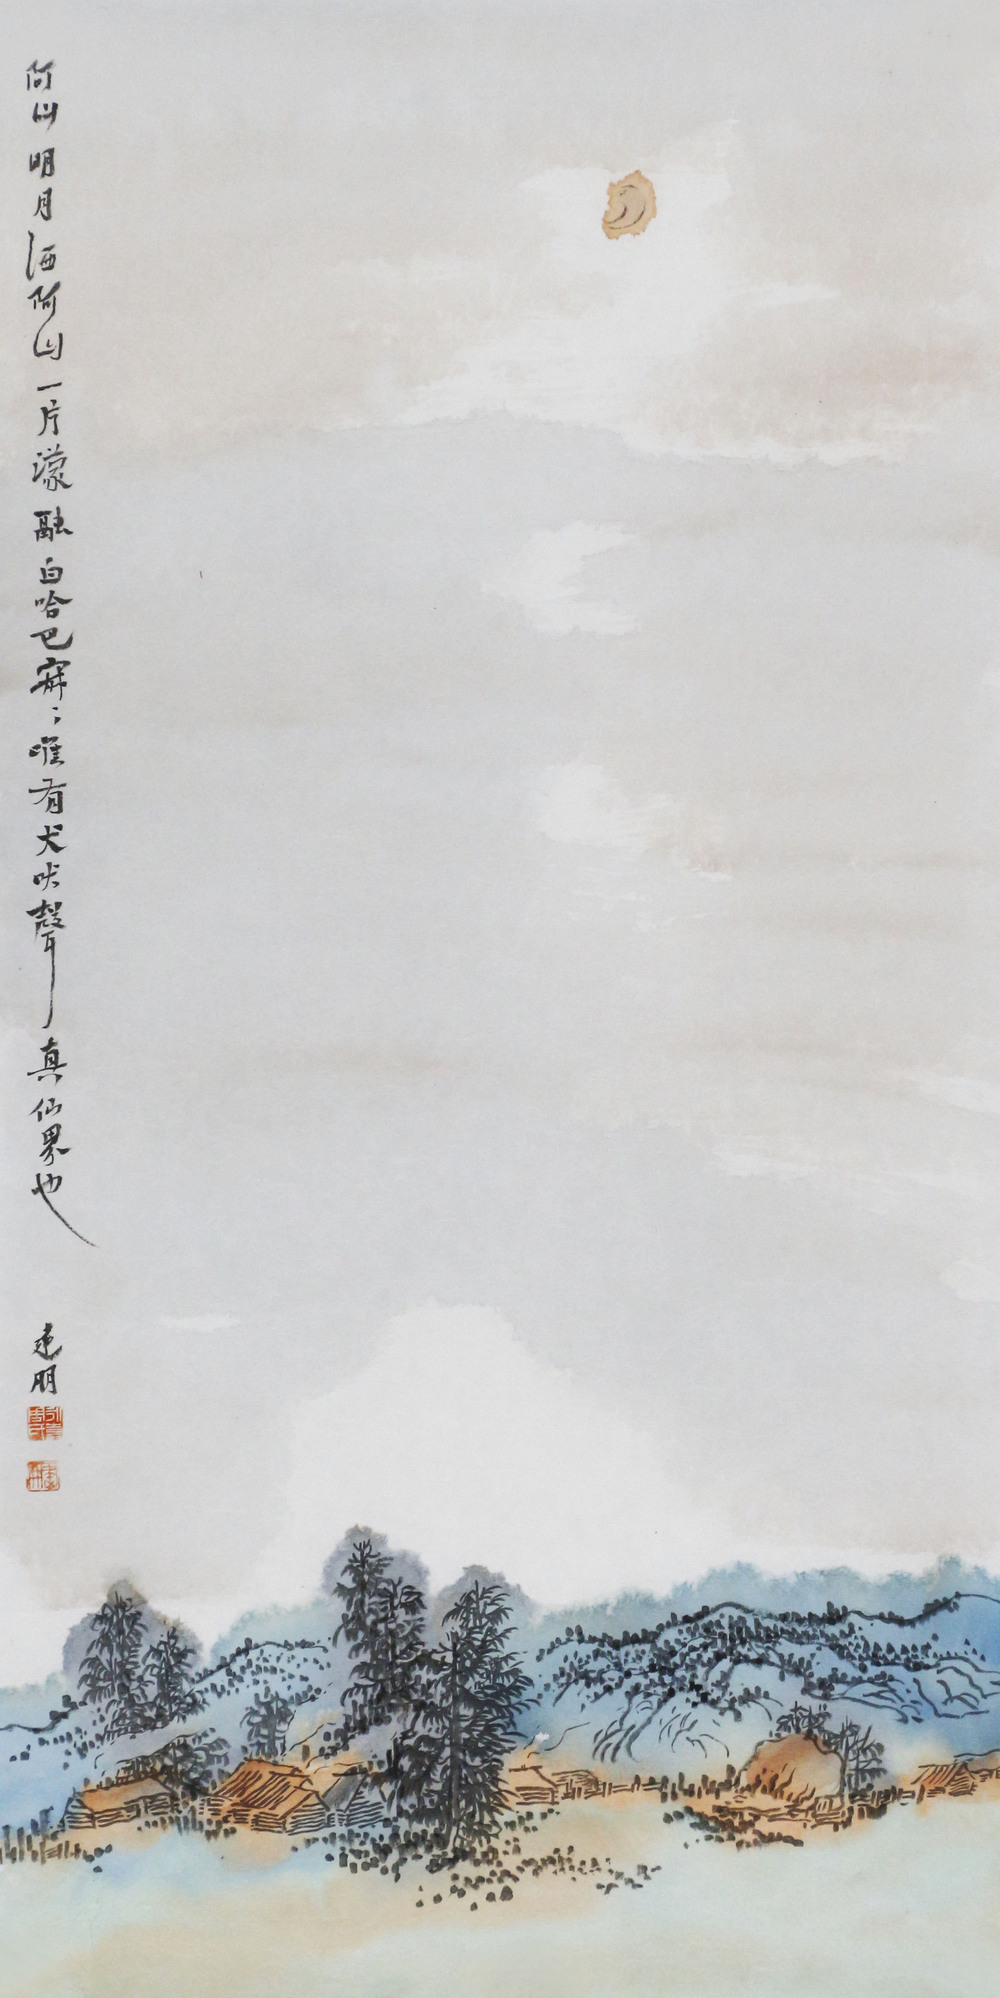 阿山明月洒阿山一片濛融白哈巴寂々唯有犬吠聲真仙界也
建朋